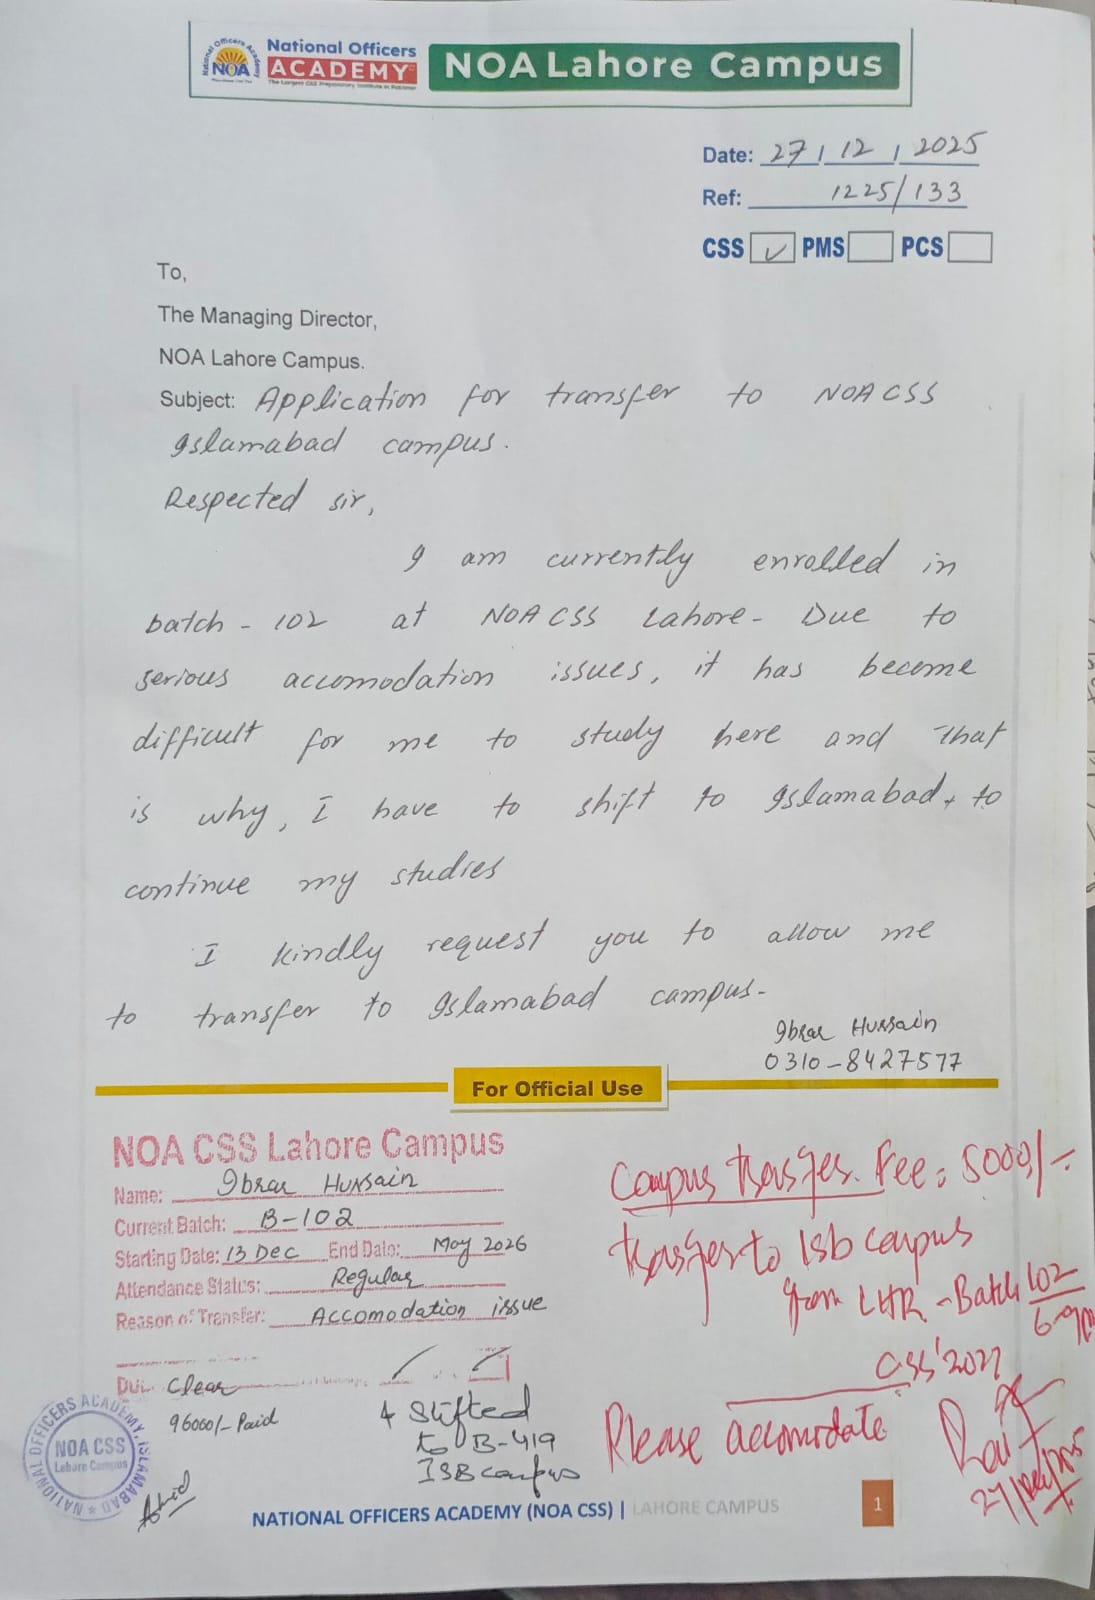 National Officers Academy
NOA
National Officers
ACADEMY
The Largest CSS Preparatory Institute in Pakistan
NOA Lahore Campus
Date: 27 / 12 / 2025
Ref: 1225/133
CSS ✓ PMS PCS
To,
The Managing Director,
NOA Lahore Campus.
Subject: Application for transfer to NOA CSS
Islamabad campus.
Respected sir,
I am currently enrolled in
batch - 102 at NOA CSS Lahore- Due to
serious accomodation issues, it has become
difficult for me to study here and that
is why, I have to shift to Islamabad, to
continue my studies
I kindly request you to allow me
to transfer to Islamabad campus-
Ibrar Hussain
0310-8427577
For Official Use
NOA CSS Lahore Campus
Name: Ibrar Hussain
Current Batch: B-102
Starting Date: 13 Dec End Date: May 2026
Attendance Status: Regular
Reason of Transfer: Accomodation issue
Clear
96000/- Paid
Shifted
to B-419
ISB campus
Campus transfer Fee: 5000/-
transfer to Isb campus
from LHR - Batch 102
CSS'2027
Please accomodate
NATIONAL OFFICERS ACADEMY, ISLAMABAD
NOA CSS
Lahore Campus
NATIONAL OFFICERS ACADEMY (NOA CSS) | LAHORE CAMPUS
1